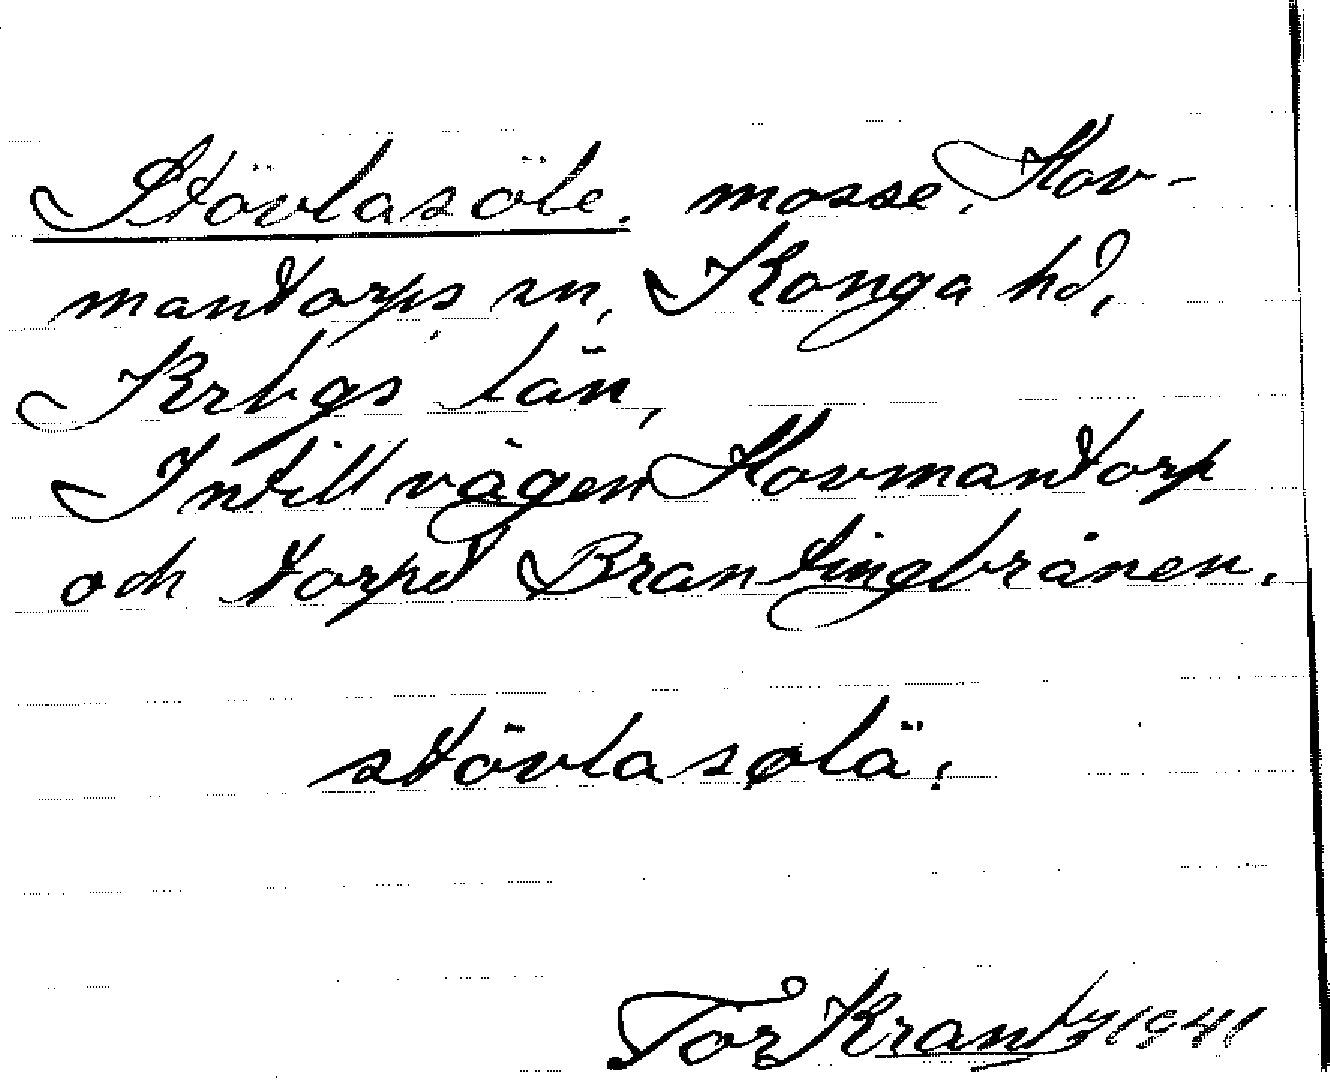 Stövlasöle. mosse, Hov-
mantorps sn, Konga hd,
Krbgs län,
Intill vägen Hovmantorp
och torpet Brantingbrånen.
stövlasølä.
Tor Krantz 1941